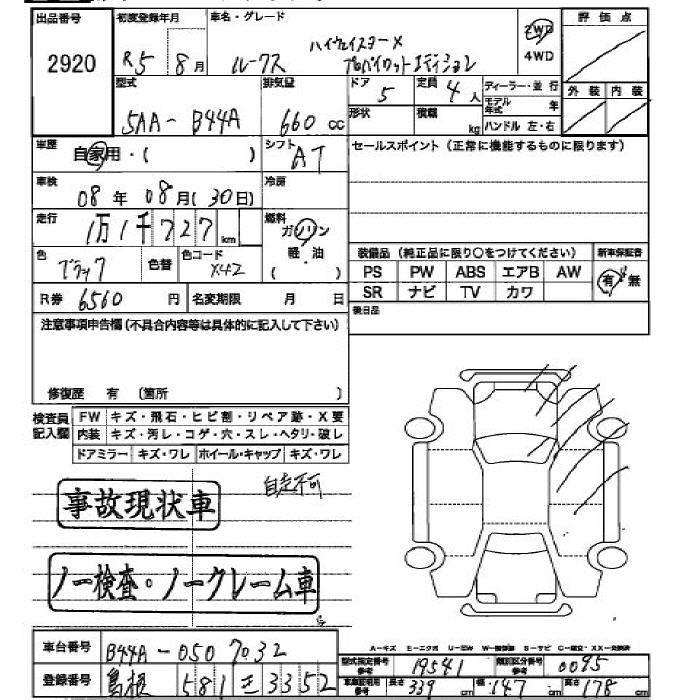 出品番号 初度登録年月 車名・グレード 評価点
2920 R5 8月 ルークス ハイウェイスターX 2WD 4WD
プロパイロットエディション
型式 排気量 ドア 定員 ディーラー・並行 外装 内装
5AA- B44A 660cc 5 4人 モデル年式 年
形状 積載 kg ハンドル 左・右
車歴 自家用・( ) シフト AT セールスポイント (正常に機能するものに限ります)
車検 08年08月(30日) 冷房
走行 1万1千727km 燃料 ガソリン
軽・油
( )
色 ブラック 色替 色コード X42
装備品 (純正品に限り○をつけてください) 新車保証書
PS PW ABS エアB AW 有・無
SR ナビ TV カワ
R券 6560円 名変期限 月 日 後日品
注意事項申告欄(不具合内容等は具体的に記入して下さい)
修復歴 有 (箇所 )
検査員記入欄 FW キズ・飛石・ヒビ割・リペア跡・X要
内装 キズ・汚レ・コゲ・穴・スレ・ヘタリ・破レ
ドアミラー キズ・ワレ ホイール・キャップ キズ・ワレ
自走不可
事故現状車
ノー検査・ノークレーム車
車台番号 B44A-0507032
登録番号 島根 581 3352
型式指定番号 参考 19541 類別区分番号 参考 0095
車庫証明用 参考 長さ 339cm 幅 147cm 高さ 178cm